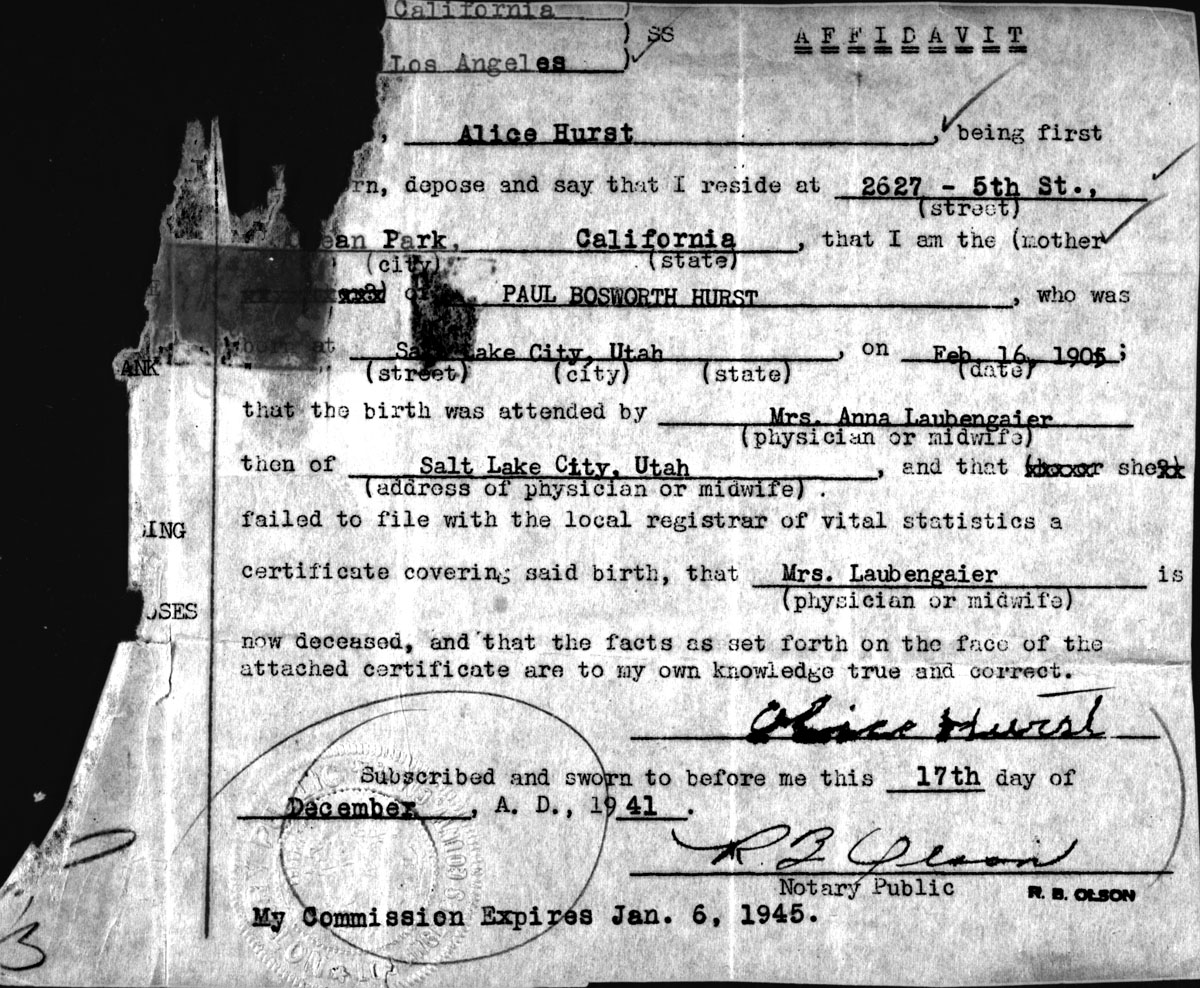 California )
) SS AFFIDAVIT
Los Angeles )
, Alice Hurst, being first
rn, depose and say that I reside at 2627 - 5th St.,
(street)
ean Park, California, that I am the (mother
(city) (state)
PAUL BOSWORTH HURST, who was
born at Salt Lake City, Utah, on Feb. 16, 1905;
(street) (city) (state) (date)
that the birth was attended by Mrs. Anna Laubengaier
(physician or midwife)
then of Salt Lake City, Utah, and that she
(address of physician or midwife).
failed to file with the local registrar of vital statistics a
certificate covering said birth, that Mrs. Laubengaier is
(physician or midwife)
now deceased, and that the facts as set forth on the face of the
attached certificate are to my own knowledge true and correct.
Alice Hurst
Subscribed and sworn to before me this 17th day of
December, A. D., 1941.
R B Olson
Notary Public R. B. OLSON
My Commission Expires Jan. 6, 1945.
ANK
ING
OSES